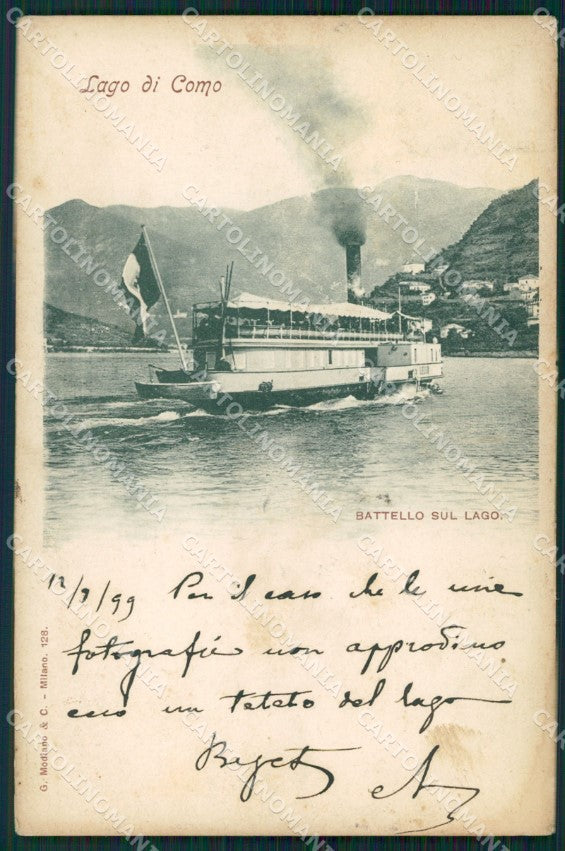 Lago di Como
BATTELLO SUL LAGO.
12/9/99 Per il caso che le mie
fotografie non approdino
un del lago
G. Modiano & C. - Milano. 128.
CARTOLINOMANIA